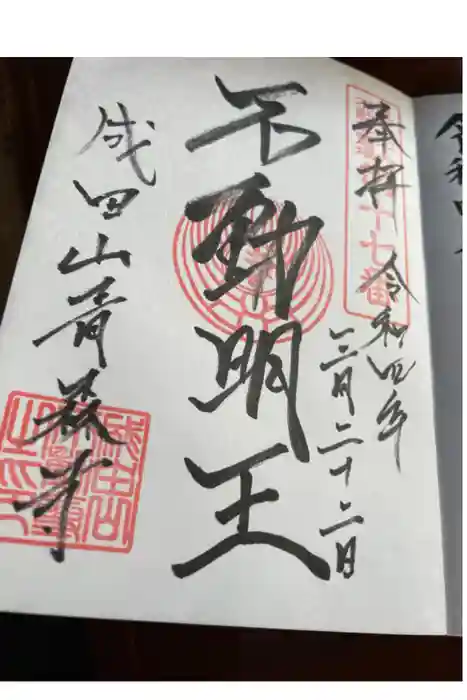 奉拝
十七番
令和四年
三月二十二日
不動明王
成田山青森寺
令和四